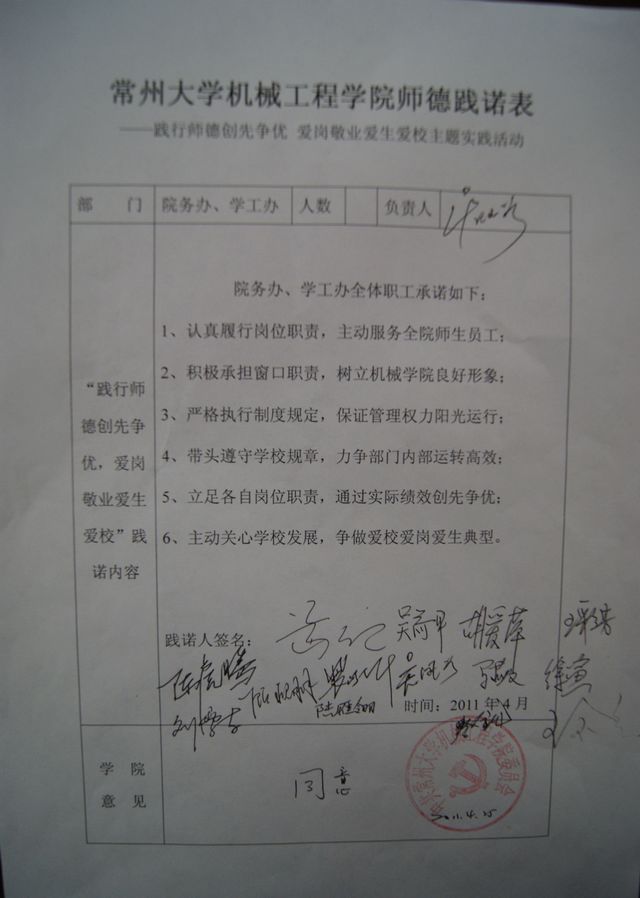 常州大学机械工程学院师德践诺表
——践行师德创先争优 爱岗敬业爱生爱校主题实践活动
部 门 院务办、学工办 人数 负责人
院务办、学工办全体职工承诺如下：
1、认真履行岗位职责，主动服务全院师生员工；
2、积极承担窗口职责，树立机械学院良好形象；
3、严格执行制度规定，保证管理权力阳光运行；
4、带头遵守学校规章，力争部门内部运转高效；
5、立足各自岗位职责，通过实际绩效创先争优；
6、主动关心学校发展，争做爱校爱岗爱生典型。
“践行师
德创先争
优，爱岗
敬业爱生
爱校”践
诺内容
践诺人签名：
时间：2011 年 4 月
学 院
意 见
同意
中共常州大学机械工程学院委员会
2011.4.25